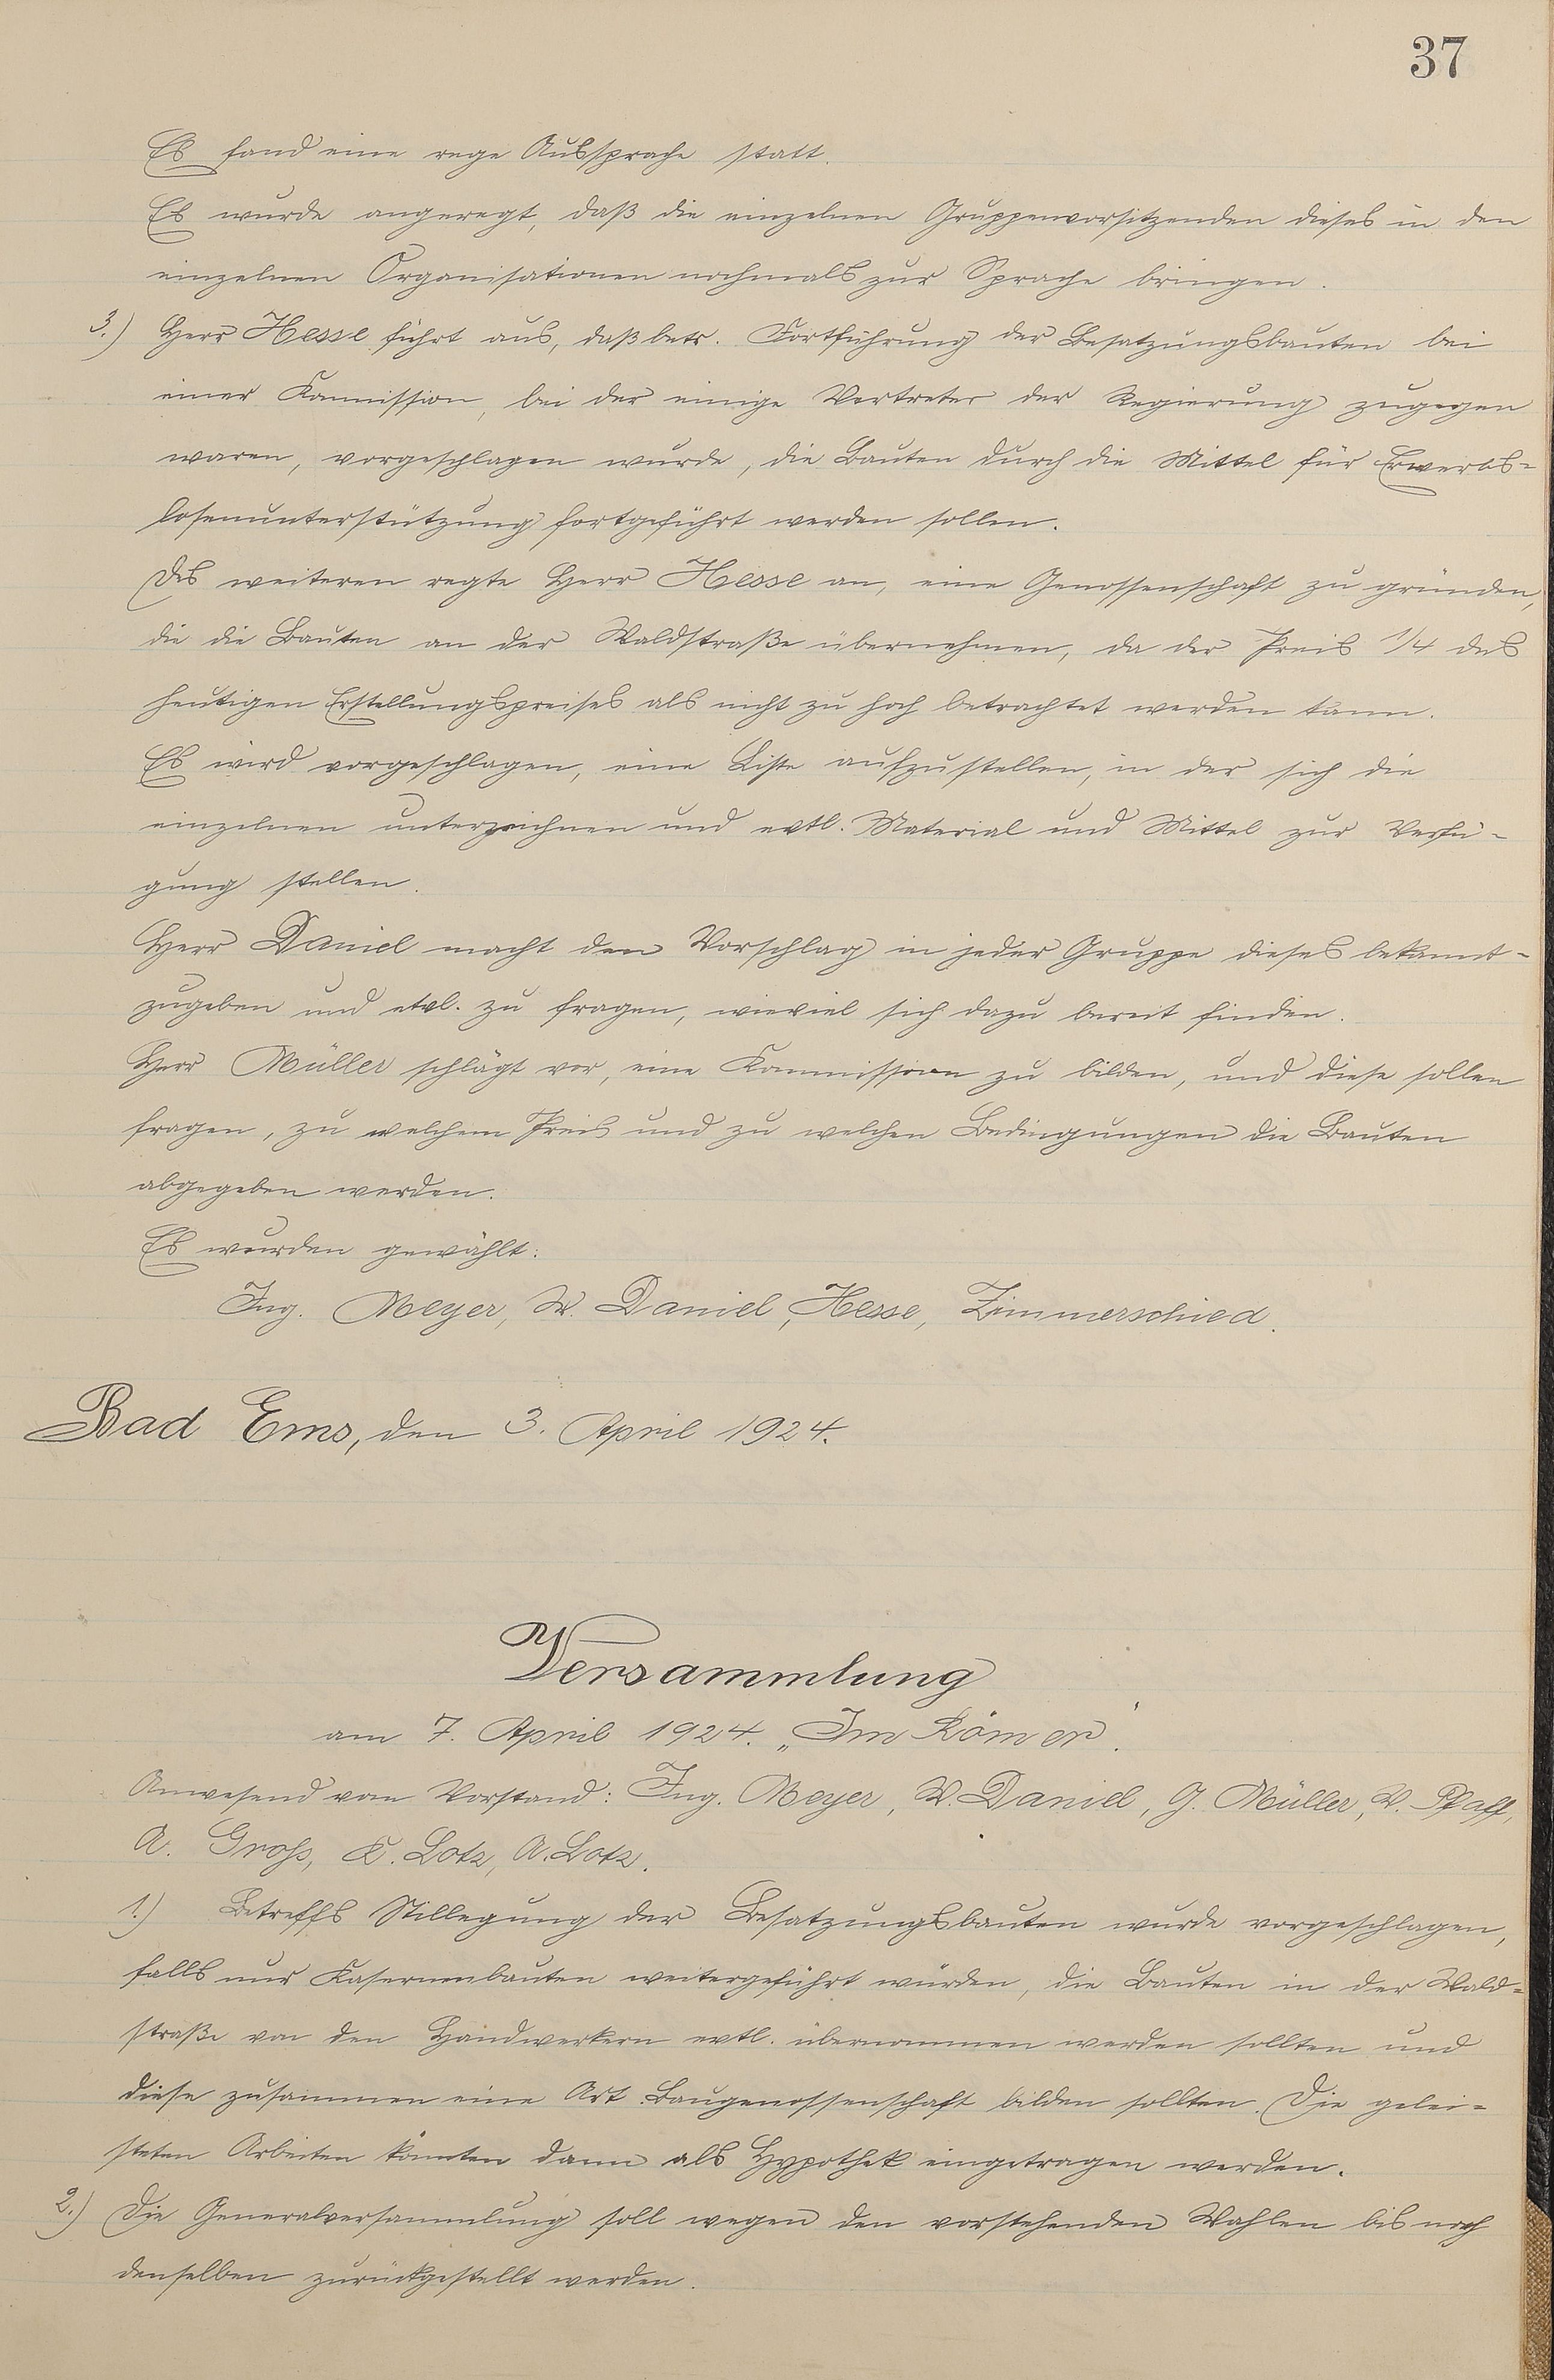 37
Es fand eine rege Aussprache statt.
Es wurde angeregt, daß die einzelnen Gruppenvorsitzenden dieses in den
einzelnen Organisationen nochmals zur Sprache bringen.
3.) Herr Hesse führt aus, daß betr. Fortführung der Besatzungsbauten bei
einer Kommission, bei der einige Vertreter der Regierung zugegen
waren, vorgeschlagen wurde, die Bauten durch die Mittel für Erwerbs-
losenunterstützung fortgeführt werden sollen.
Des weiteren regte Herr Hesse an, eine Genossenschaft zu gründen,
die die Bauten an der Waldstraße übernehmen, da der Preis 1/4 des
heutigen Erstellungspreises als nicht zu hoch betrachtet werden kann.
Es wird vorgeschlagen, eine Liste aufzustellen, in der sich die
einzelnen unterzeichnen und evtl. Material und Mittel zur Verfü-
gung stellen.
Herr Daniel macht den Vorschlag in jeder Gruppe dieses bekannt-
zugeben und etvl. zu fragen, wieviel sich dazu bereit finden.
Herr Müller schlägt vor, eine Kommission zu bilden, und diese sollen
fragen, zu welchem Preis und zu welchen Bedingungen die Bauten
abgegeben werden.
Es wurden gewählt:
Ing. Meyer, W. Daniel, Hesse, Zimmerschied.
Bad Ems, den 3. April 1924.
Versammlung
am 7. April 1924. „Im Römer".
Anwesend vom Vorstand: Ing. Meyer, W. Daniel, G. Müller, W. Pfaff,
A. Groß, K. Lotz, A. Lotz.
1.) Betreffs Stillegung der Besatzungsbauten wurde vorgeschlagen,
falls nur Kasernenbauten weitergeführt würden, die Bauten in der Wald-
straße von den Handwerkern evtl. übernommen werden sollten und
diese zusammen eine Art Baugenossenschaft bilden sollten. Die gelei-
steten Arbeiten könnten dann als Hypothek eingetragen werden.
2.) Die Generalversammlung soll wegen den vorstehenden Wahlen bis nach
denselben zurückgestellt werden.